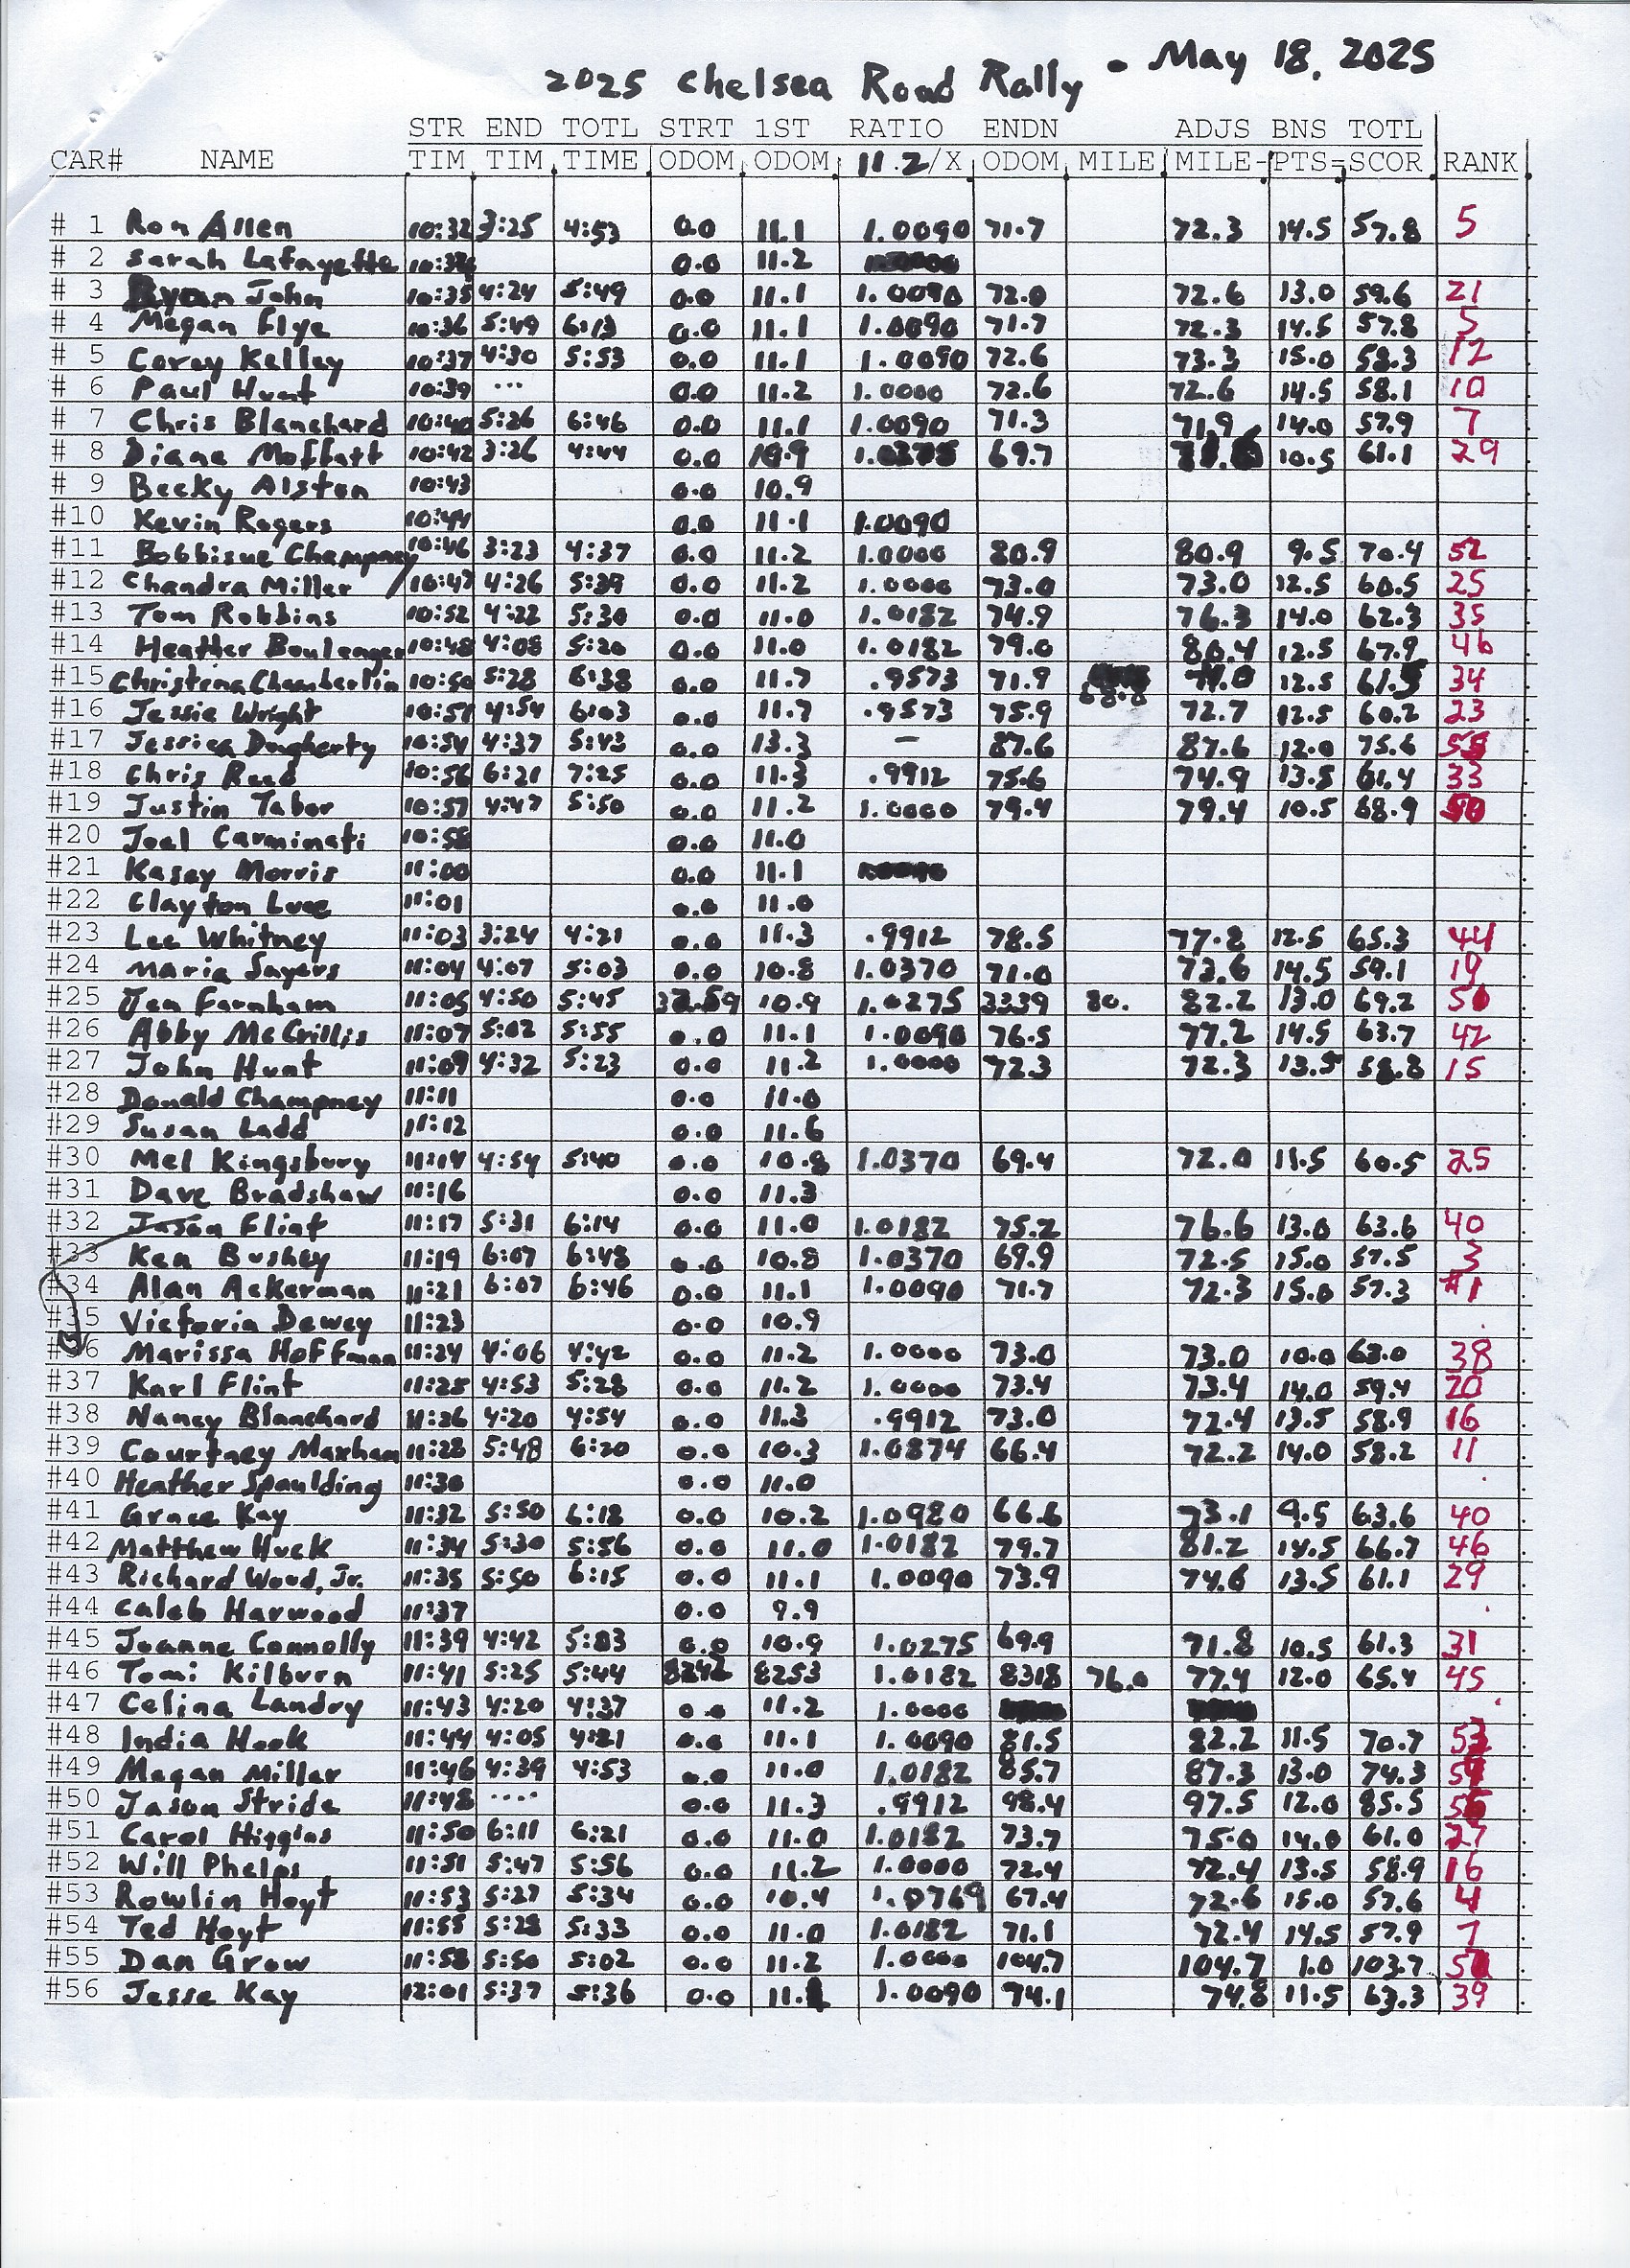 2025 Chelsea Road Rally - May 18, 2025
STR END TOTL STRT 1ST RATIO ENDN ADJS BNS TOTL
CAR# NAME TIM TIM TIME ODOM ODOM 11.2/X ODOM MILE MILE-PTS=SCOR RANK
# 1 Ron Allen 10:32 3:25 4:53 0.0 11.1 1.0090 71.7 72.3 14.5 57.8 5
# 2 Sarah Lafayette 0.0 11.2
# 3 Ryan John 10:35 4:24 5:49 0.0 11.1 1.0090 72.0 72.6 13.0 59.6 21
# 4 Megan Flye 10:36 5:49 6:13 0.0 11.1 1.0090 71.7 72.3 14.5 57.8 5
# 5 Corey Kelley 10:37 4:30 5:53 0.0 11.1 1.0090 72.6 73.3 15.0 58.3 12
# 6 Paul Hunt 10:39 ... 0.0 11.2 1.0000 72.6 72.6 14.5 58.1 10
# 7 Chris Blanchard 10:40 5:26 6:46 0.0 11.1 1.0090 71.3 71.9 14.0 57.9 7
# 8 Diane Moffatt 10:42 3:26 4:44 0.0 10.9 1.0275 69.7 71.6 10.5 61.1 29
# 9 Becky Alston 10:43 0.0 10.9
#10 Kevin Rogers 10:44 0.0 11.1 1.0090
#11 Bobbisue Champney 10:46 3:23 4:37 0.0 11.2 1.0000 80.9 80.9 9.5 70.4 52
#12 Chandra Miller 10:47 4:26 5:39 0.0 11.2 1.0000 73.0 73.0 12.5 60.5 25
#13 Tom Robbins 10:52 4:22 5:30 0.0 11.0 1.0182 74.9 76.3 14.0 62.3 35
#14 Heather Boulenger 10:48 4:08 5:20 0.0 11.0 1.0182 79.0 80.4 12.5 67.9 46
#15 Christina Chamberlin 10:50 5:28 6:38 0.0 11.7 .9573 71.9 68.8 12.5 34
#16 Jessie Wright 10:51 4:54 6:03 0.0 11.7 .9573 75.9 72.7 12.5 60.2 23
#17 Jessica Dougherty 10:54 4:37 5:43 0.0 13.3 – 87.6 87.6 12.0 75.6 55
#18 Chris Reed 10:56 6:21 7:25 0.0 11.3 .9912 75.6 74.9 13.5 61.4 33
#19 Justin Tabor 10:57 4:47 5:50 0.0 11.2 1.0000 79.4 79.4 10.5 68.9 50
#20 Joel Carminati 10:58 0.0 11.0
#21 Kasey Morris 11:00 0.0 11.1
#22 Clayton Luce 11:01 0.0 11.0
#23 Lee Whitney 11:03 3:24 4:21 0.0 11.3 .9912 78.5 77.8 12.5 65.3 44
#24 Maria Sayers 11:04 4:07 5:03 0.0 10.8 1.0370 71.0 73.6 14.5 59.1 19
#25 Jen Farnham 11:05 4:50 5:45 10.9 1.0275 3339 80. 82.2 13.0 69.2
#26 Abby McGrillis 11:07 5:02 5:55 0.0 11.1 1.0090 76.5 77.2 14.5 63.7 42
#27 John Hunt 11:09 4:32 5:23 0.0 11.2 1.0000 72.3 72.3 13.5 58.8 15
#28 Donald Champney 11:11 0.0 11.0
#29 Susan Ladd 11:12 0.0 11.6
#30 Mel Kingsbury 11:14 4:54 5:40 0.0 10.8 1.0370 69.4 72.0 11.5 60.5 25
#31 Dave Bradshaw 11:16 0.0 11.3
#32 Jason Flint 11:17 5:31 6:14 0.0 11.0 1.0182 75.2 76.6 13.0 63.6 40
#33 Ken Bushey 11:19 6:07 6:48 0.0 10.8 1.0370 69.9 72.5 15.0 57.5 3
#34 Alan Ackerman 11:21 6:07 6:46 0.0 11.1 1.0090 71.7 72.3 15.0 57.3 #1
#35 Victoria Dewey 11:23 0.0 10.9
#36 Marissa Hoffman 11:24 4:06 4:42 0.0 11.2 1.0000 73.0 73.0 10.0 63.0 38
#37 Karl Flint 11:25 4:53 5:28 0.0 11.2 1.0000 73.4 73.4 14.0 59.4 20
#38 Nancy Blanchard 11:26 4:20 4:54 0.0 11.3 .9912 73.0 72.4 13.5 58.9 16
#39 Courtney Maxham 11:28 5:48 6:20 0.0 10.3 1.0874 66.4 72.2 14.0 58.2 11
#40 Heather Spaulding 11:30 0.0 11.0
#41 Grace Kay 11:32 5:50 6:18 0.0 10.2 1.0980 66.6 73.1 9.5 63.6 40
#42 Matthew Huck 11:34 5:30 5:56 0.0 11.0 1.0182 79.7 81.2 14.5 66.7 46
#43 Richard Wood, Jr. 11:35 5:50 6:15 0.0 11.1 1.0090 73.9 74.6 13.5 61.1 29
#44 Caleb Harwood 11:37 0.0 9.9
#45 Joanne Connolly 11:39 4:42 5:03 0.0 10.9 1.0275 69.9 71.8 10.5 61.3 31
#46 Tomi Kilburn 11:41 5:25 5:44 8242 8253 1.0182 8318 76.0 77.4 12.0 65.4 45
#47 Celina Landry 11:43 4:20 4:37 0.0 11.2 1.0000
#48 India Hook 11:44 4:05 4:21 0.0 11.1 1.0090 81.5 82.2 11.5 70.7 53
#49 Megan Miller 11:46 4:39 4:53 0.0 11.0 1.0182 85.7 87.3 13.0 74.3 54
#50 Jason Stride 11:48 .... 0.0 11.3 .9912 98.4 97.5 12.0 85.5 56
#51 Carol Higgins 11:50 6:11 6:21 0.0 11.0 1.0182 73.7 75.0 14.0 61.0 27
#52 Will Phelps 11:51 5:47 5:56 0.0 11.2 1.0000 72.4 72.4 13.5 58.9 16
#53 Rowlin Hoyt 11:53 5:27 5:34 0.0 10.4 1.0769 67.4 72.6 15.0 57.6 4
#54 Ted Hoyt 11:55 5:28 5:33 0.0 11.0 1.0182 71.1 72.4 14.5 57.9 7
#55 Dan Grow 11:58 5:50 5:02 0.0 11.2 1.0000 104.7 104.7 1.0 103.7
#56 Jesse Kay 12:01 5:37 5:36 0.0 11.1 1.0090 74.1 74.8 11.5 63.3 39